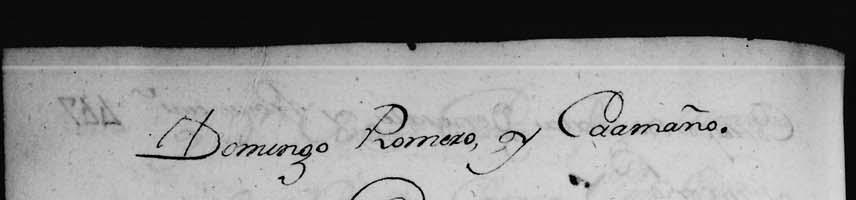 Domingo Romero, y Caamaño.